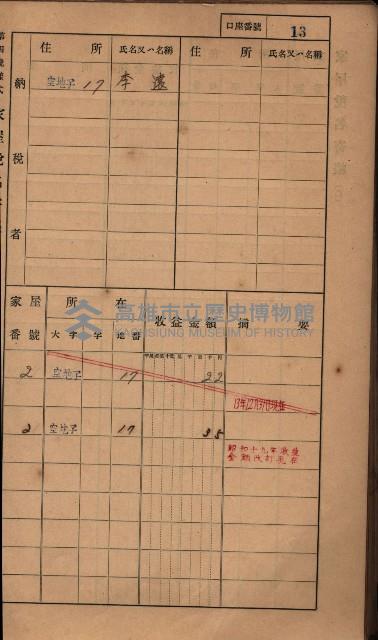 口座番號 13
住所 氏名又ハ名稱 住所 氏名又ハ名稱
納稅者
空地子 17 李
家屋番號 所在 收益金額 摘要
大字 字 地番
2 空地子 17 22
13年12月31日現在
2 空地子 17 35
昭和十九年收益
金額改訂現在
高雄市立歷史博物館
KAOHSIUNG MUSEUM OF HISTORY